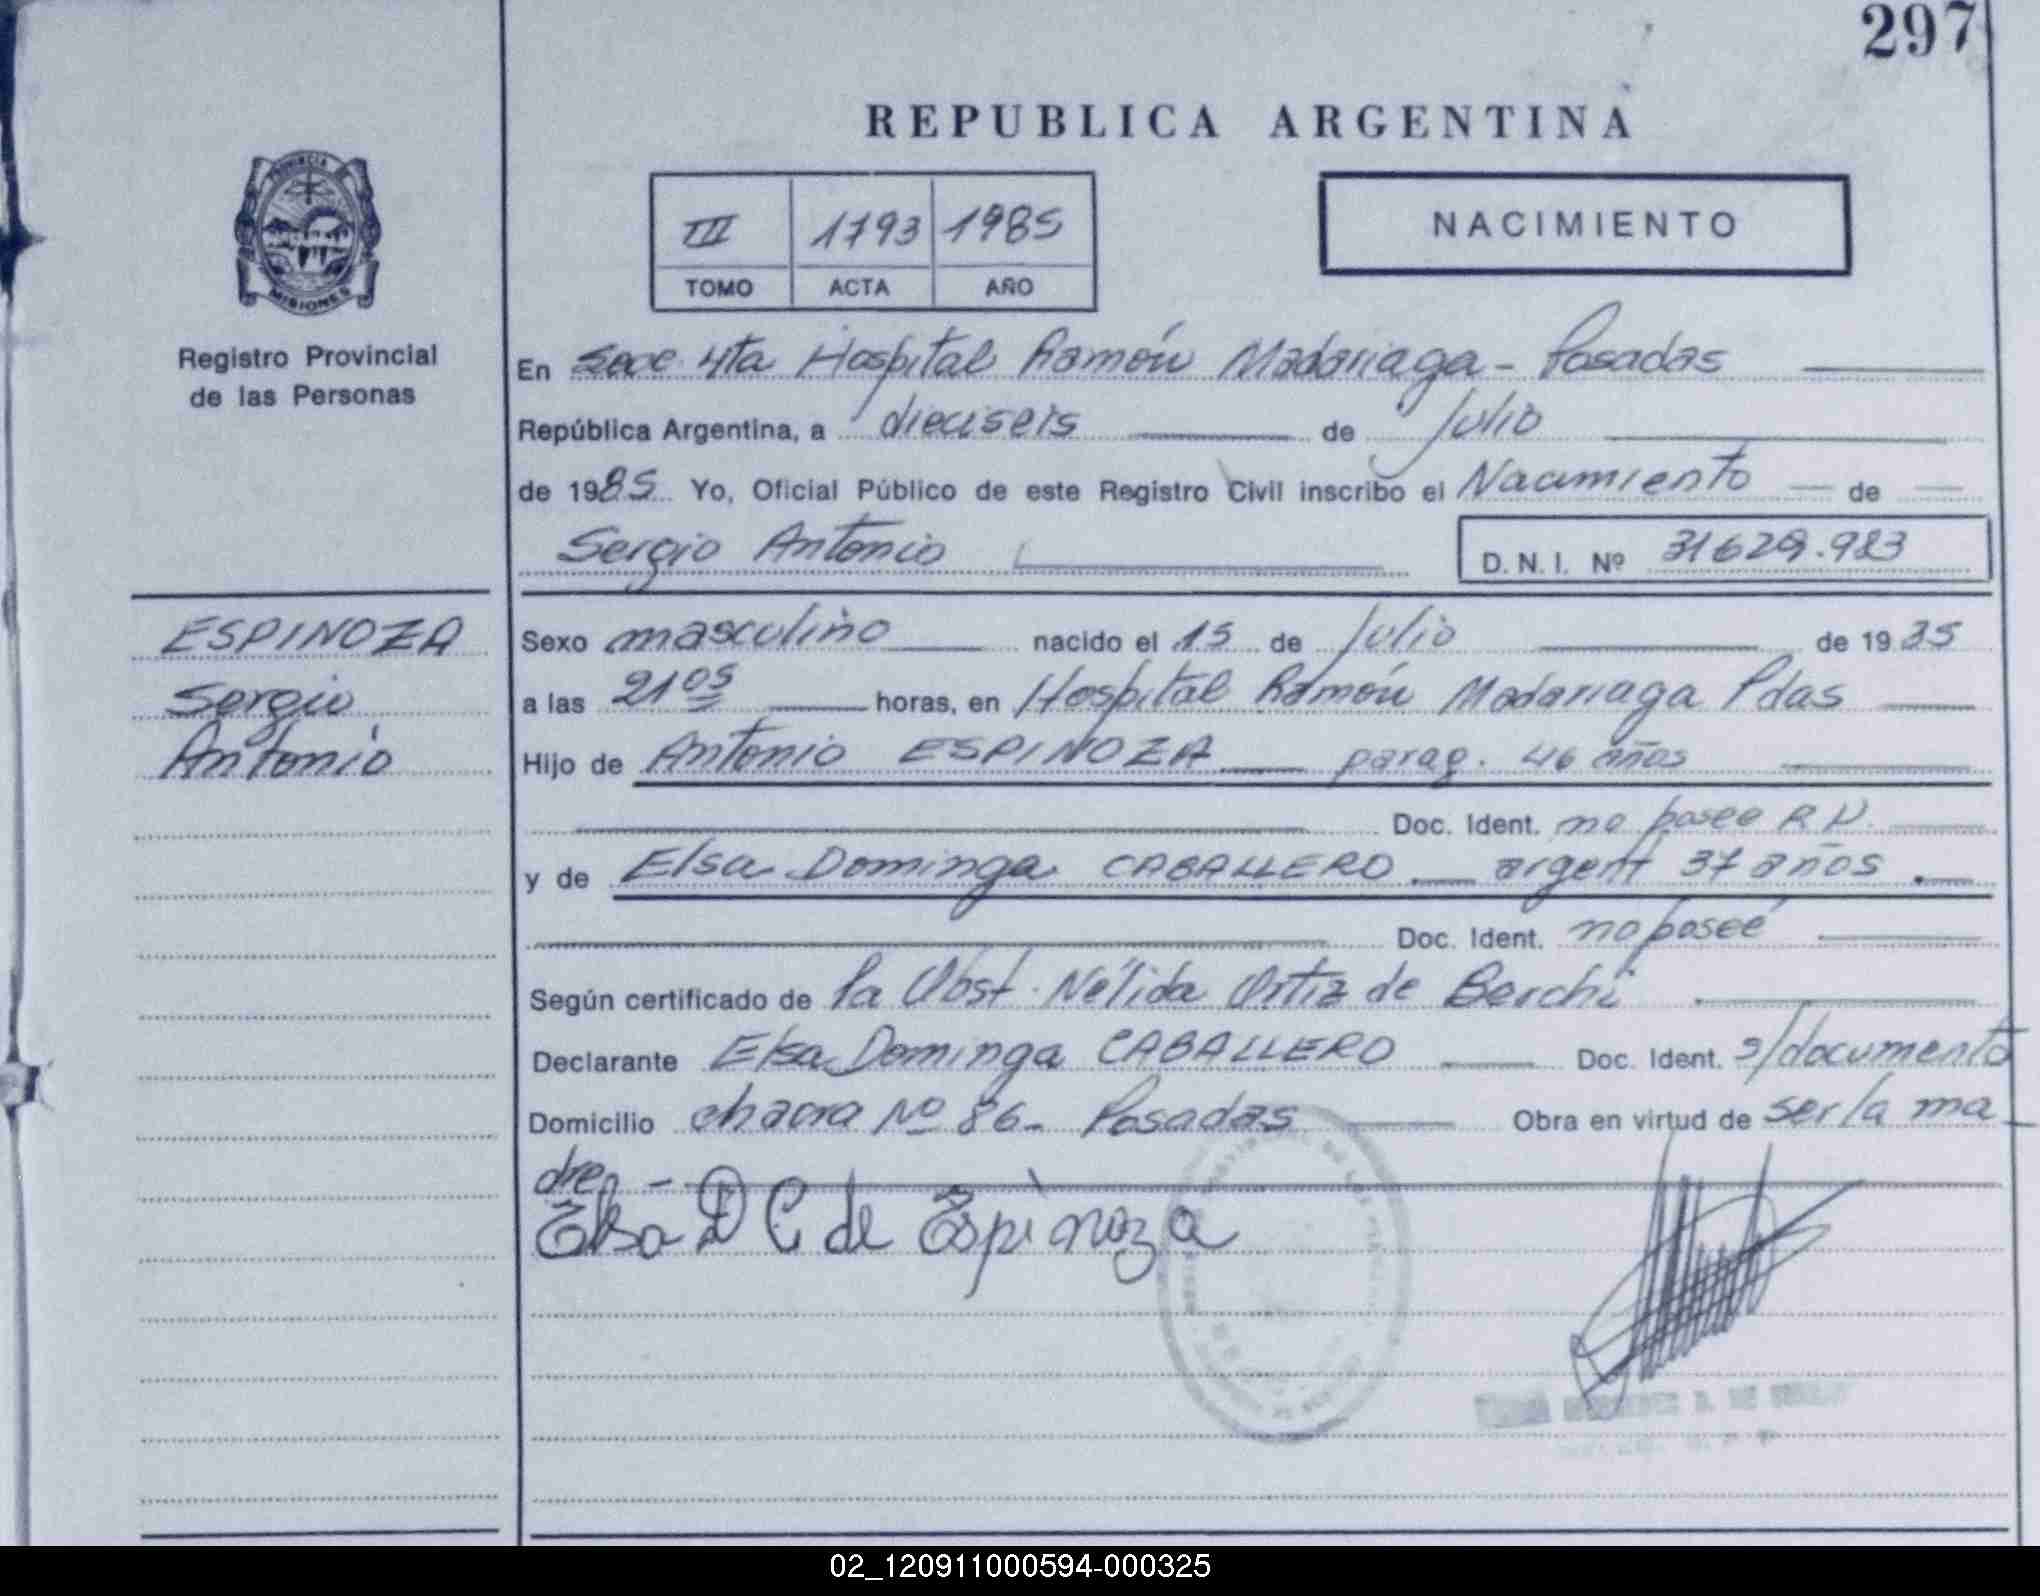 297
REPUBLICA ARGENTINA
PROVINCIA
MISIONES
Registro Provincial
de las Personas
III 1793 1985
TOMO ACTA AÑO
NACIMIENTO
En Secc 4ta Hospital Ramón Madariaga - Posadas
República Argentina, a dieciseis de Julio
de 1985 Yo, Oficial Público de este Registro Civil inscribo el Nacimiento de
Sergio Antonio D.N.I. Nº 31629.983
ESPINOZA
Sergio
Antonio
Sexo masculino nacido el 15 de Julio de 1985
a las 21 05 horas, en Hospital Ramón Madariaga Pdas
Hijo de Antonio ESPINOZA parag. 46 años
Doc. Ident. no posee R N.
y de Elsa Dominga CABALLERO argent 37 años
Doc. Ident. no posee
Según certificado de la Obst. Nélida Ortiz de Berchi
Declarante Elsa Dominga CABALLERO Doc. Ident. s/documento
Domicilio chacra Nº 86 - Posadas Obra en virtud de ser la ma
dre -
Elsa D C de Espinoza
02_120911000594-000325